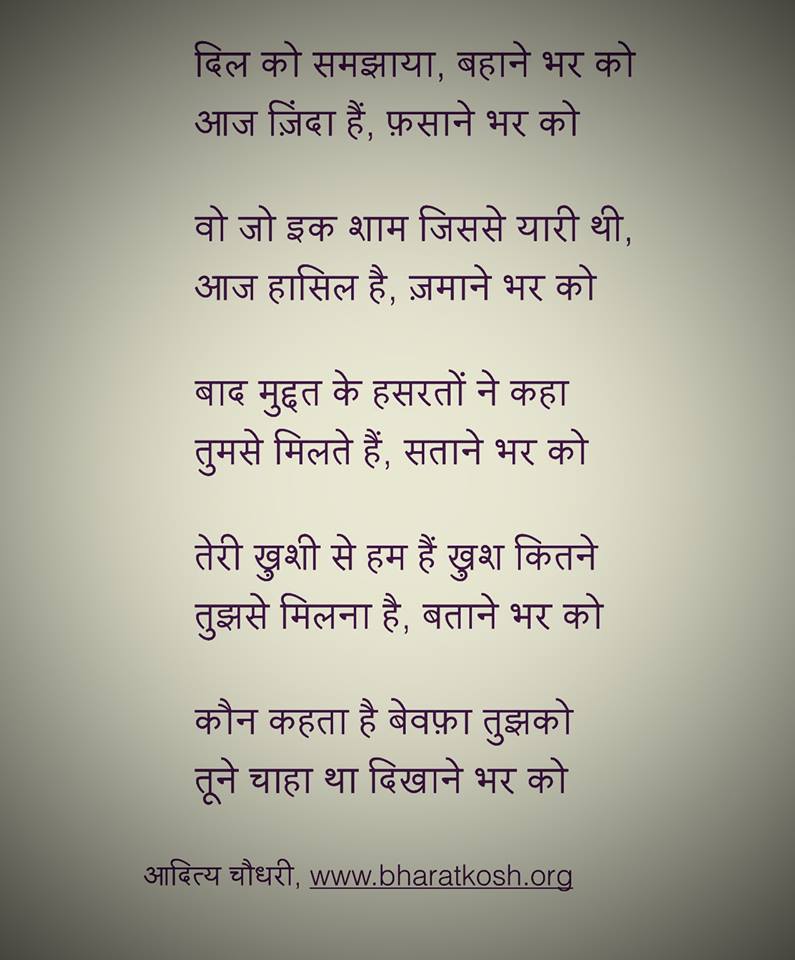 दिल को समझाया, बहाने भर को
आज ज़िंदा हैं, फ़साने भर को
वो जो इक शाम जिससे यारी थी,
आज हासिल है, ज़माने भर को
बाद मुद्दत के हसरतों ने कहा
तुमसे मिलते हैं, सताने भर को
तेरी ख़ुशी से हम हैं ख़ुश कितने
तुझसे मिलना है, बताने भर को
कौन कहता है बेवफ़ा तुझको
तूने चाहा था दिखाने भर को
आदित्य चौधरी, www.bharatkosh.org